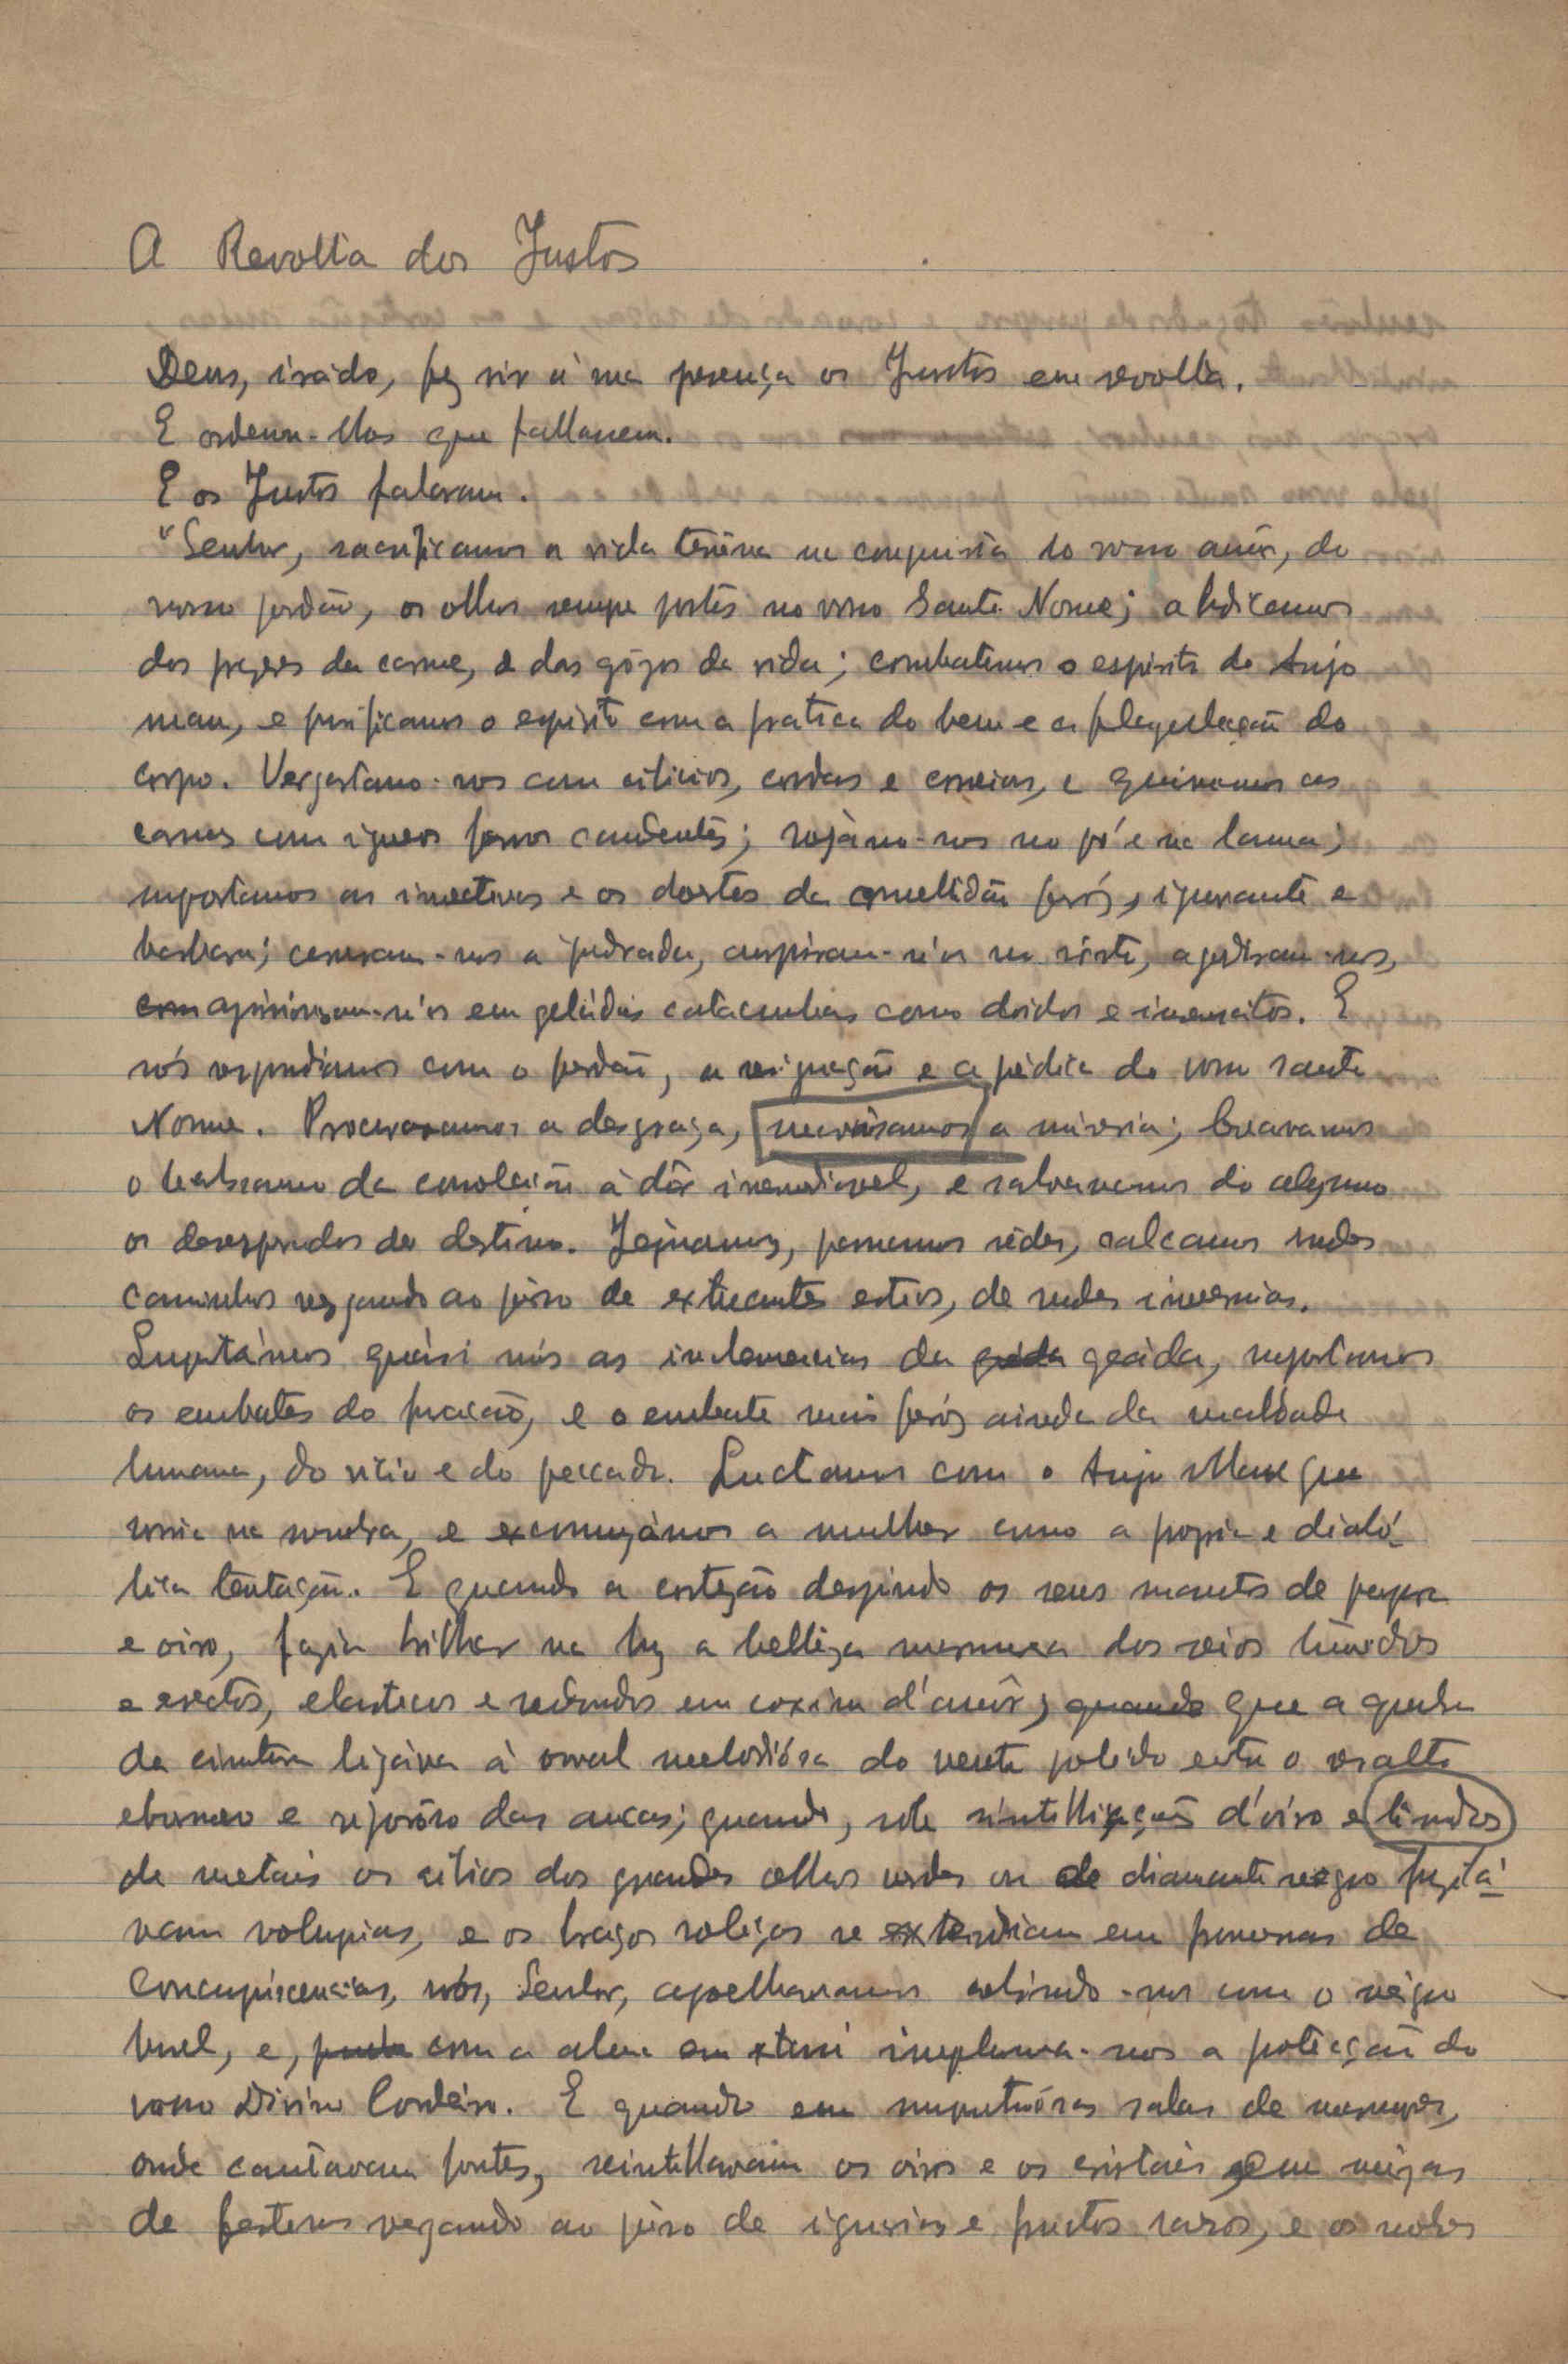 A Revolta dos Justos
Deus, irado, fez vir á sua presença os Justos em revolta.
E ordenou-lhes que fallassem.
E os Justos falaram.
"Senhor, sacrificamos a vida terrena na conquista do vosso amôr, do
vosso perdão, os olhos sempre postos no vosso Santo Nome; abdicamos
dos prazeres da carne, e dos gôzos da vida; combatemos o espirito do Anjo
mau, e purificamos o espirito com a pratica do bem e a flagellação do
corpo. Vergastamo-nos com cilicios, cordas e correias, e queimamos as
carnes com igneos ferros candentes; rojámo-nos no pó e na lama;
suportamos as invectivas e os doestos da multidão feróz, ignorante e
barbara; correram-nos a pedrada, cuspiram-nos no rosto, agrediram-nos,
com aprisionam-nos em gelidas catacumbas como doidos e insensatos. E
nós respondiamos com o perdão, a resignação e a prédica do vosso santo
Nome. Procuravamos a desgraça, a miseria; levavamos
o balsamo da consolação á dôr irremediavel, e salvavamos do abysmo
os desesperados do destino. Jejuamos, passamos sêdes, calcamos rudes
caminhos vergando ao pêso de extuantes estios, de rudes invernias.
Suportámos quási nús as inclemencias da geáda geáda, suportamos
os embates do furacão, e o embate mais feróz ainda da maldade
humana, do vicio e do peccado. Luctamos com o Anjo Mau que
sorria na sombra, e excomungámos a mulher como a propria e diabó-
lica tentação. E quando a cortezão despindo os seus mantos de purpura
e oiro, fazia brilhar na luz a belleza marmorea dos seios túmidos
e erectos, elasticos e redondos em coxim d'amôr, quando que a quebra
da cintura ligáva á oval melodiósa do ventre polido entre o resalto
eburneo e vigorôso das ancas; quando, sob sintillações d'oiro e lindos
de metais os cilios dos grandes olhos verdes ou de diamante negro projetá-
vam volupias, e os braços roliços se extendiam em promessas de
concupiscencias, nós, Senhor, ajoelhavamos cobrindo-nos com o négro
burel, e, com a alma em extasi imploravamos a protecção do
vosso Divino Cordeiro. E quando em sumptuósas salas de marmores,
onde cantavam fontes, scintillavam os oiros e os cristais, em mêzas
de festins vergando ao pêso de iguarias e fructos raros, e os nobres